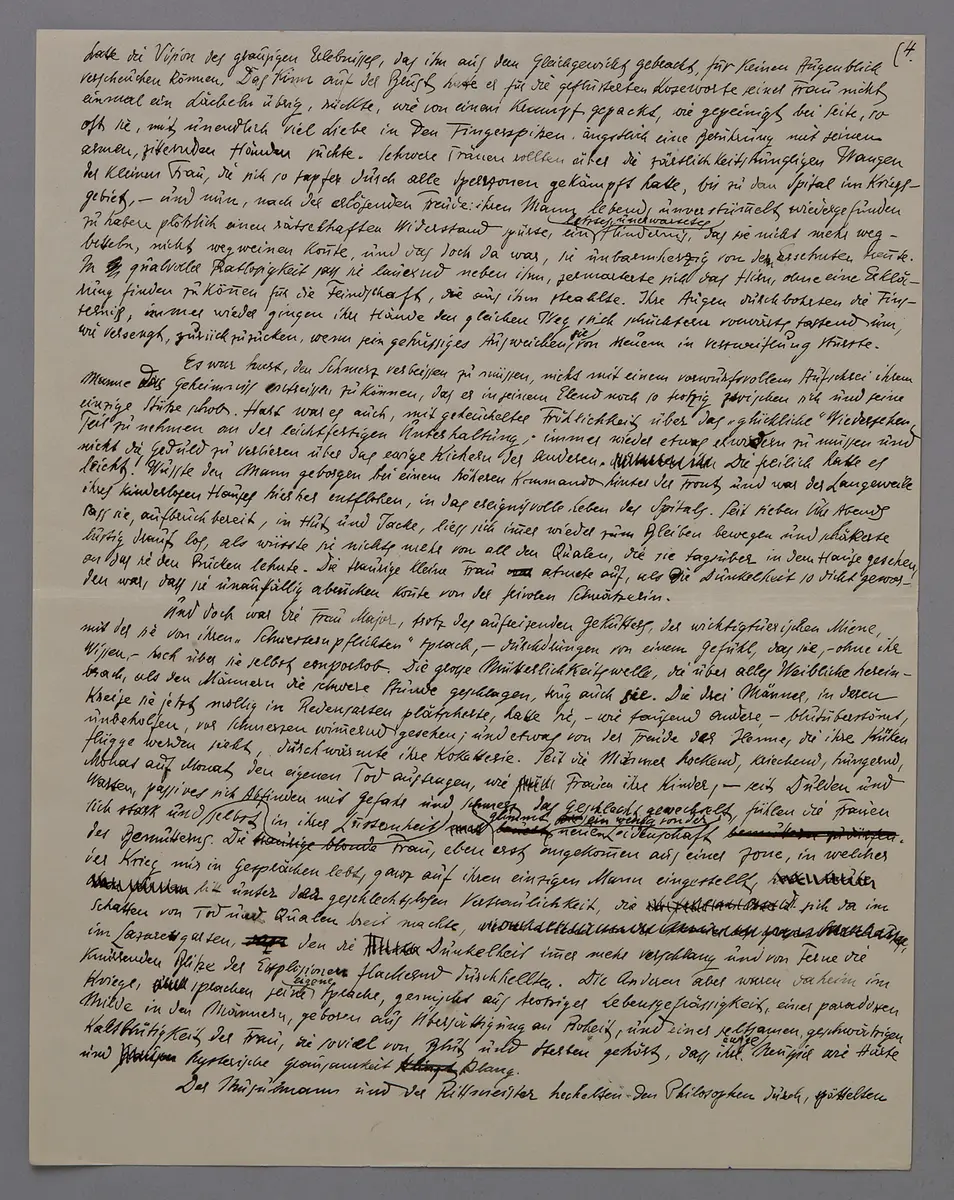 (4.
hatte die Vision des grausigen Erlebnisses, das ihn aus dem Gleichgewicht gebracht, für keinen Augenblick
verscheuchen können. Das Kinn auf der Brust hatte er für die geflüsterten Koseworte seiner Frau nicht
einmal ein Lächeln übrig, rückte, wie von einem Krampf gepackt, wie gepeinigt bei Seite, so
oft sie, mit unendlich viel Liebe in den Fingerspitzen ängstlich eine Berührung mit seinen
armen, zitternden Händen suchte. Schwere Tränen rollten über die zärtlichkeitshungrigen Wangen
der kleinen Frau, die sich so tapfer durch alle Sperrzonen gekämpft hatte, bis zu dem Spital im Kriegs-
gebiet, – und nun, nach der erlösenden Freude: ihren Mann lebend, unverstümmelt wiedergefunden
zu haben plötzlich einen rätselhaften Widerstand spürte, ein unerwartetes Hindernis, das sie nicht mehr weg-
betteln, nicht wegweinen konte, und das doch da war, sie unbarmherzig von dem ersehnten trennte.
In qualvoller Ratlosigkeit sass sie lauernd neben ihm, zermarterte sich das Hirn, ohne eine Erklä-
rung finden zu können für die Feindschaft, die aus ihm strahlte. Ihre Augen durchbohrten die Fins-
ternis, immer wieder gingen ihre Hände den gleichen Weg sich schüchtern vorwärts tastend um,
wie versengt, zurückzuzucken, wenn sein gehässiges Ausweichen sie von neuem in Verzweiflung stürzte.
Es war hart, den Schmerz verbeissen zu müssen, nicht mit einem vorwurfsvollem Aufschrei ihrem
Manne das Geheimnis entreissen zu können, das er in seinem Elend noch so trotzig zwischen sich und seine
einzige Stütze schob. Hart war es auch, mit geheuchelter Fröhlichkeit über das „glückliche" Wiedersehen
Teil zu nehmen an der leichtfertigen Unterhaltung, immer wieder etwas erwidern zu müssen und
nicht die Geduld zu verlieren über das ewige Kichern der Anderen. Die freilich hatte es
leicht. Wusste den Mann geborgen bei einem höheren Kommando hinter der Front und war der Langeweile
ihres kinderlosen Hauses hierher entflohen, in das ereignisvolle Leben des Spitals. Seit sieben Uhr Abends
sass sie, aufbruchbereit, in Hut und Jacke, liess sich immer wieder zum Bleiben bewegen und schäkerte
lustig drauf los, als wüsste sie nichts mehr von all den Qualen, die sie tagsüber in dem Hause gesehen,
an das sie den Rücken lehnte. Die traurige kleine Frau atmete auf, als die Dunkelheit so dicht gewor-
den war, dass sie unauffällig abrücken konte von der frivolen Schwätzerin.
Und doch war die Frau Major, trotz des aufreizenden Gekichers, der wichtigtuerischen Miene,
mit der sie von ihren „Schwesternpflichten" sprach, – durchdrungen von einem Gefühl, das sie, – ohne ihr
Wissen, – hoch über sie selbst emporhob. Die grosse Mütterlichkeitswelle, die über alles Weibliche herein-
brach, als den Männern die schwere Stunde geschlagen, trug auch sie. Die drei Männer, in deren
Kreise sie jetzt mollig in Redensarten plätscherte, hatte sie, – wie tausend Andere, – blutüberströmt,
unbeholfen, vor Schmerzen wimmernd gesehen; und etwas von der Freude der Henne, die ihre Küken
flügge werden sieht, durchwärmte ihre Koketterie. Seit die Männer hockend, kriechend, hungernd,
Monat auf Monat den eigenen Tod austragen, wie Frauen ihre Kinder, – seit Dulden und
Warten, passives sich Abfinden mit Gefahr und Schmerz das Geschlecht gewechselt, fühlen die Frauen
sich stark und selbst in ihrer Lüsternheit glimmt ein wenig von der neuen Leidenschaft
des Bemutterns. Die Frau, eben erst angekommen aus einer Zone, in welcher
der Krieg nur in Gesprächen lebt, ganz auf ihren einzigen Mann eingestellt,
litt unter der geschlechtslosen Vertraulichkeit, die sich da im
Schatten von Tod und Qualen breit machte,
im Lazarettgarten, den die Dunkelheit immer mehr verschlang und von ferne die
Blitze der Explosionen flackernd durchhellten. Die Anderen aber waren daheim im
Kriege, sprachen seine eigene Sprache, gemischt aus trotziger Lebensgefrässigkeit, einer paradoxen
Milde in den Männern, geboren aus Übersättigung an Roheit, und einer seltsamen, geschwätzigen
Kaltblütigkeit der Frau, die so viel von Blut und Sterben gehört, dass ihre Neugier wie Härte
und hysterische Grausamkeit klang.
Der Musulmann und der Rittmeister hechelten den Philosophen durch, spöttelten